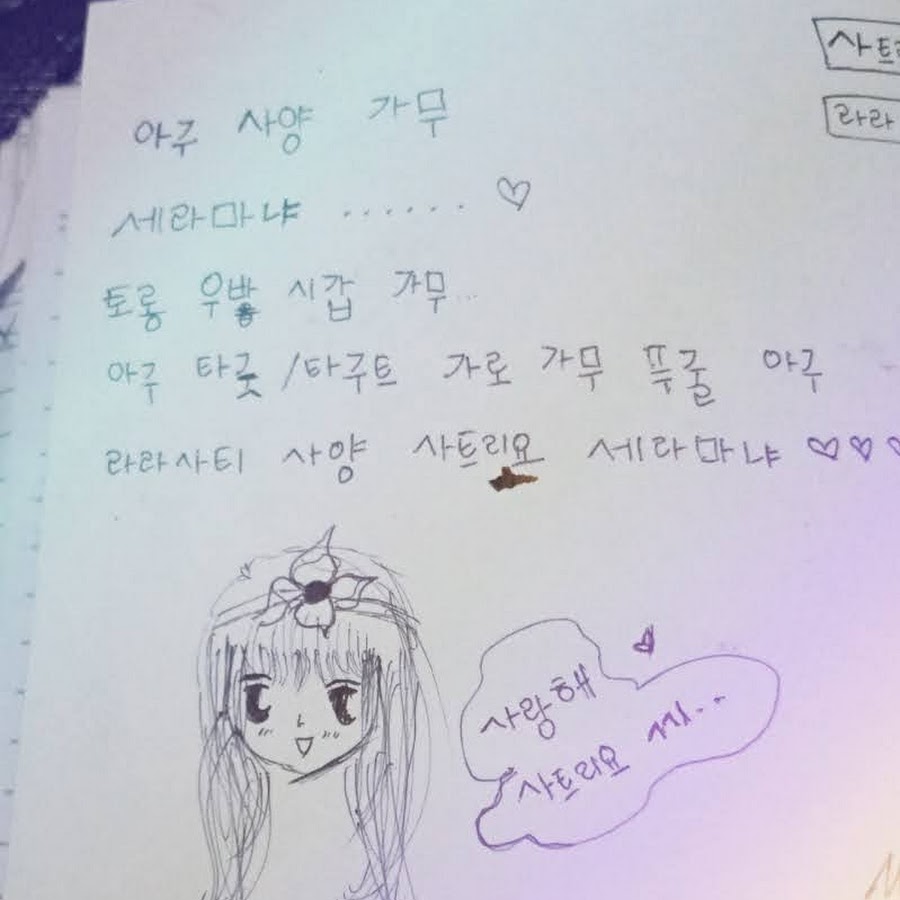 아쿠 사양 가무
세라마냐 ...... ♡
토롱 우방 시갑 가무..
아쿠 타굿 / 타쿠트 가로 가무 푸굴 아쿠
라라사티 사양 사트리요 세라마냐 ♡♡♡
사트리
라라
사랑해
사트리요 씨...